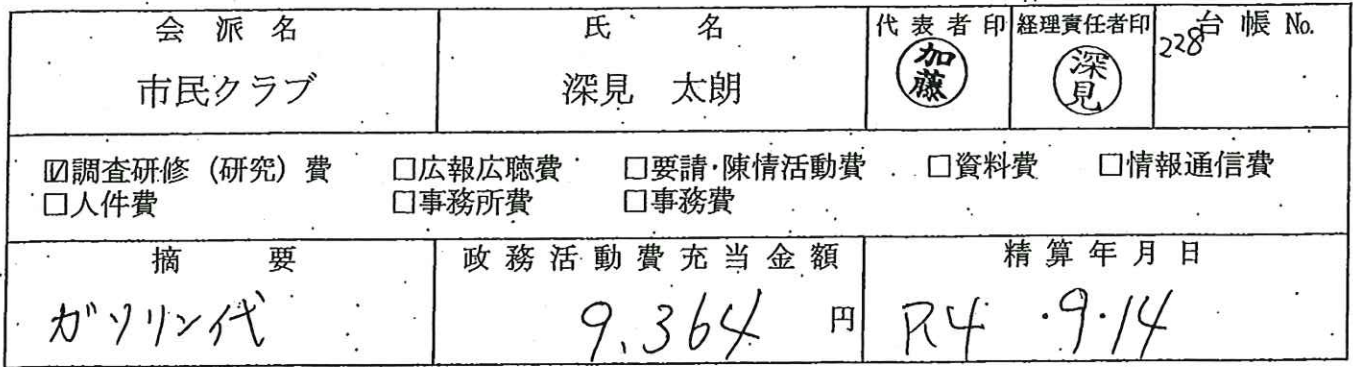 会派名 氏名 代表者印 経理責任者印 台帳No.
市民クラブ 深見 太朗 加藤 深見 228
☑調査研修(研究)費 □広報広聴費 □要請・陳情活動費 □資料費 □情報通信費
□人件費 □事務所費 □事務費
摘要 政務活動費充当金額 精算年月日
ガソリン代 9,364円 R4・9・14